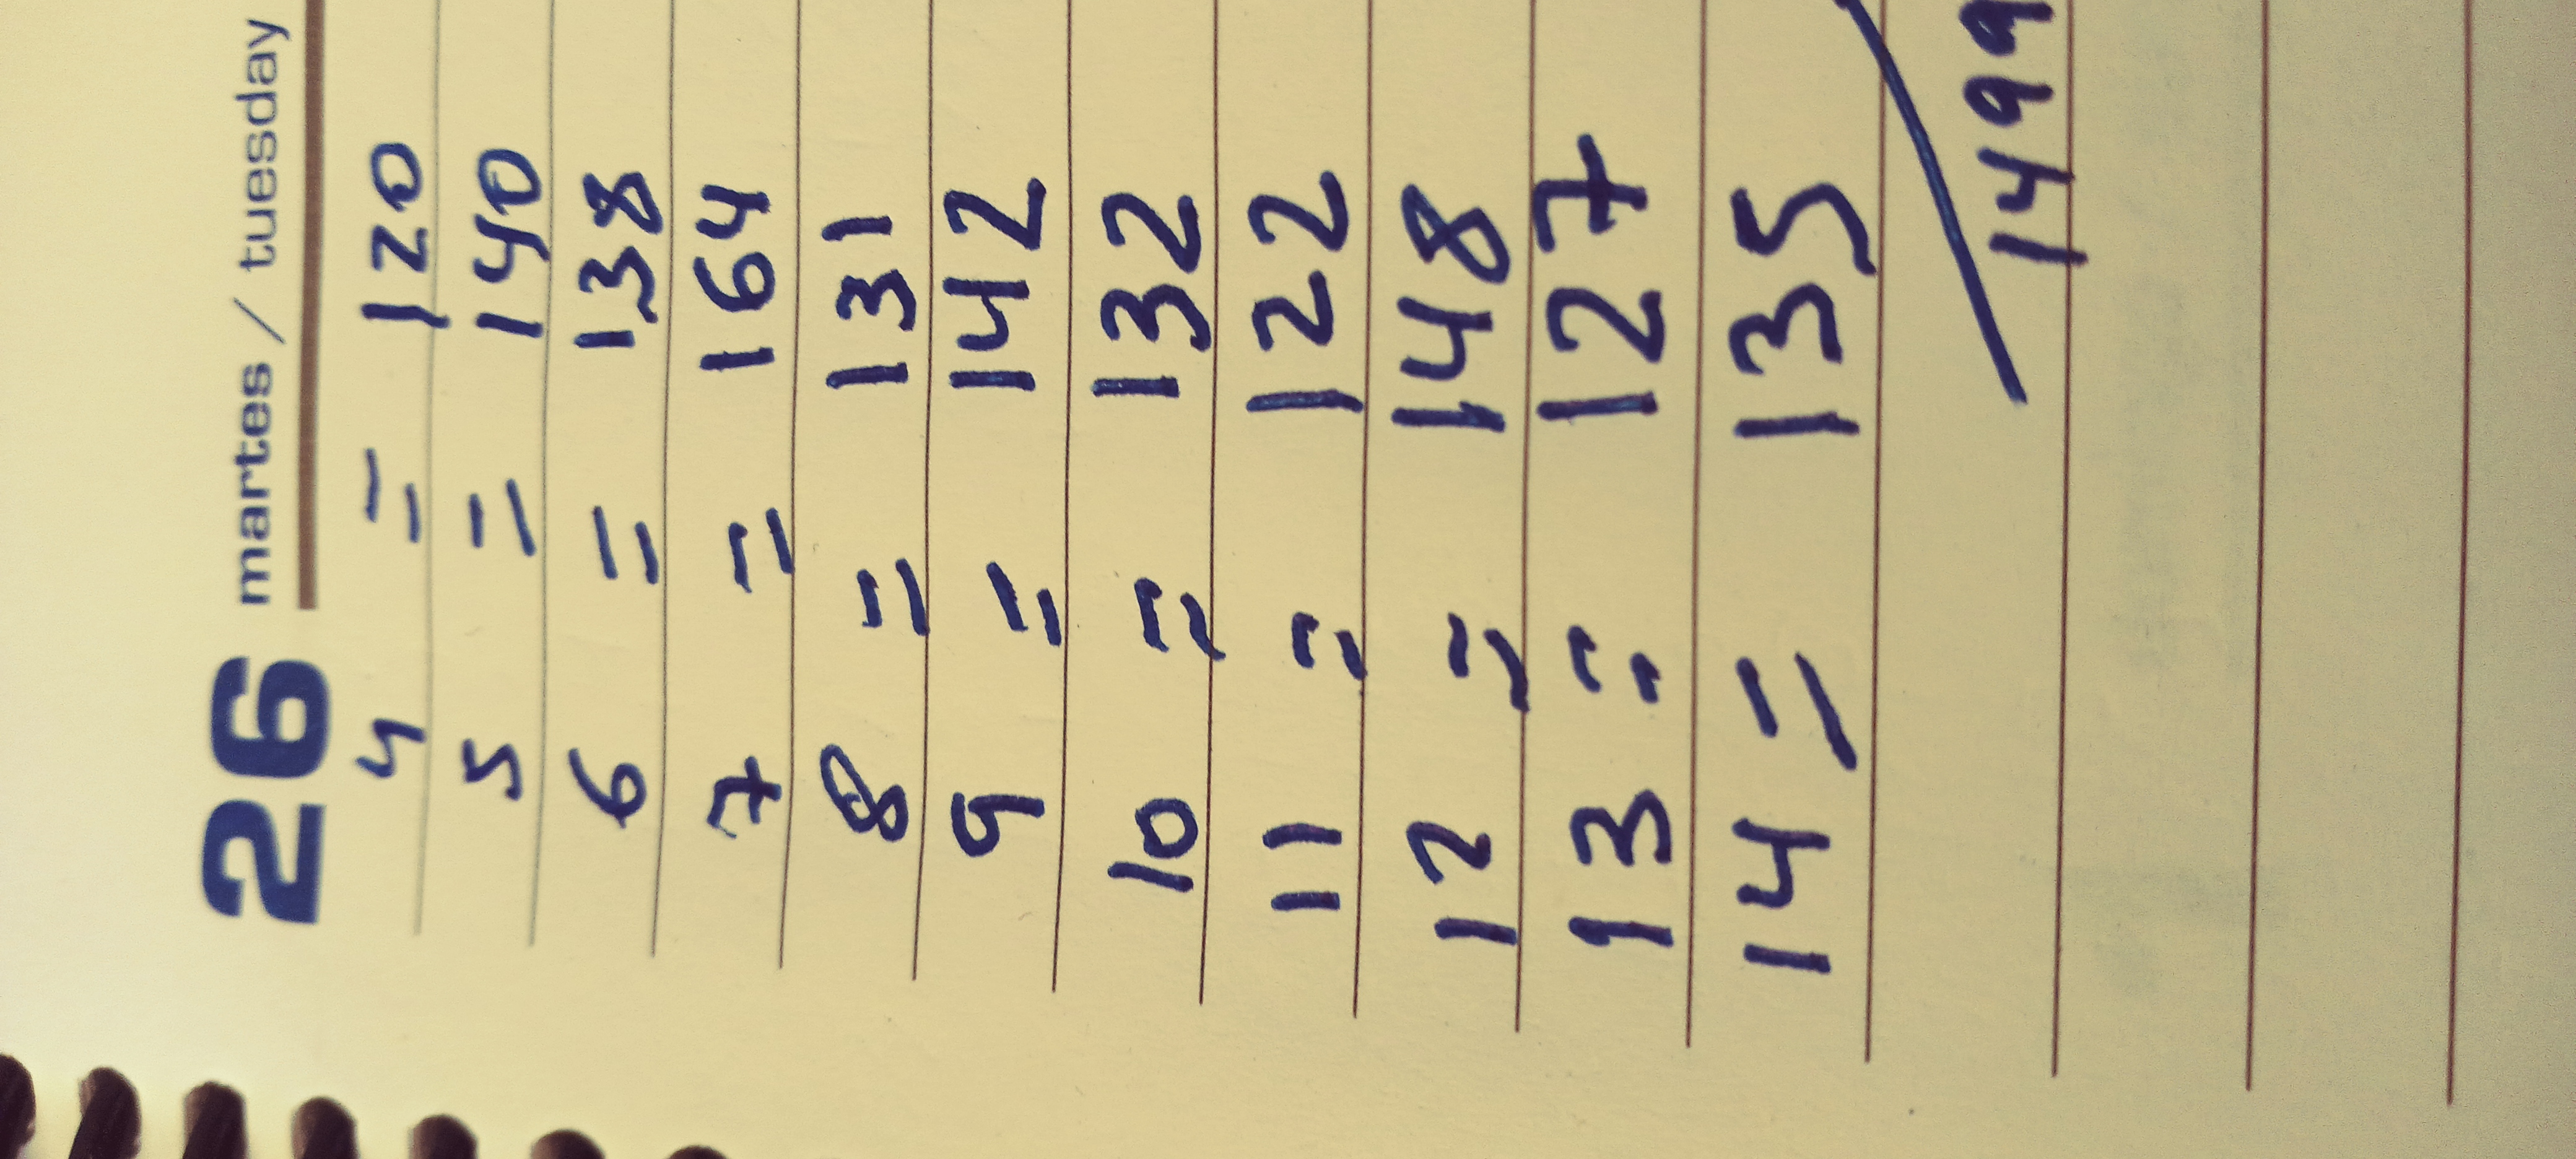 26 martes / tuesday
4 = 120
5 = 140
6 = 138
7 = 164
8 = 131
9 = 142
10 = 132
11 = 122
12 = 148
13 = 127
14 = 135
1499